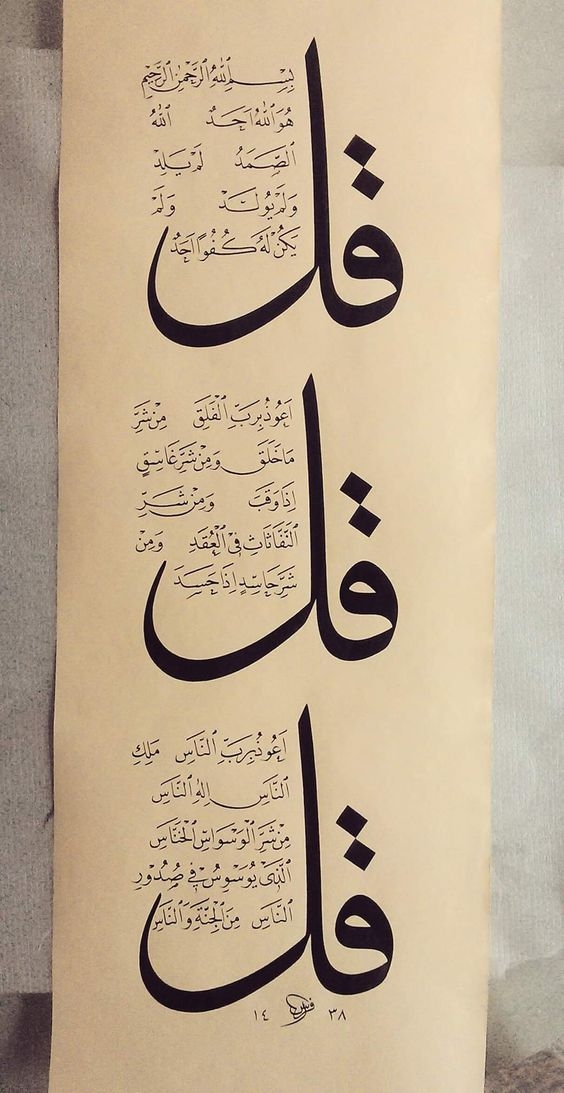 بِسْمِ ٱللّٰهِ ٱلرَّحْمٰنِ ٱلرَّحِيمِ
قل
هُوَ ٱللّٰهُ اَحَدٌ ٱللّٰهُ
ٱلصَّمَدُ لَمْ يَلِدْ
وَلَمْ يُولَدْ وَلَمْ
يَكُنْ لَهُ كُفُوًا اَحَدٌ
قل
اَعُوذُ بِرَبِّ ٱلْفَلَقِ مِنْ شَرِّ
مَا خَلَقَ وَمِنْ شَرِّ غَاسِقٍ
اِذَا وَقَبَ وَمِنْ شَرِّ
ٱلنَّفَّاثَاتِ فِى ٱلْعُقَدِ وَمِنْ
شَرِّ حَاسِدٍ اِذَا حَسَدَ
قل
اَعُوذُ بِرَبِّ ٱلنَّاسِ مَلِكِ
ٱلنَّاسِ اِلٰهِ ٱلنَّاسِ
مِنْ شَرِّ ٱلْوَسْوَاسِ ٱلْخَنَّاسِ
ٱلَّذِى يُوَسْوِسُ فِى صُدُورِ
ٱلنَّاسِ مِنَ ٱلْجِنَّةِ وَٱلنَّاسِ
١٤ ٣٨